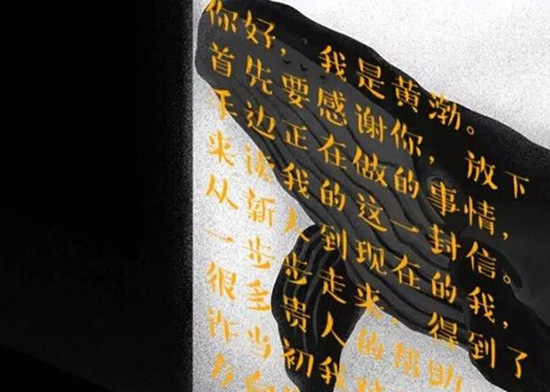 你好，我是黄渤。
首先要感谢你，放下
手边正在做的事情，
来读我的这一封信。
从新人到现在的我，
一步步走来，得到了
很多贵人的帮助
当初我